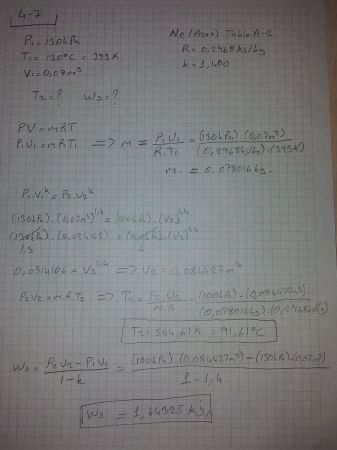 4-7
P₁=130kPa
T₁=120°C = 393K
V₁=0,07m³
N₂ (Azot) Tablo A-2
R= 0,2968kJ/kg
k=1,400
T₂=? W₃=?
PV=mRT
P₁V₁=mRT₁ => m = P₁V₁/R.T₁ = (130kPa).(0,07m³)/(0,2968kJ/kg).(393K)
m = 0,078016kg
P₁.V₁ᵏ = P₂.V₂ᵏ
(130kPa).(0,07m³)¹,⁴=(100kPa).(V₂)¹,⁴
(130kPa).(0,02416) = (100kPa).(V₂)¹,⁴
1,3 1
0,0314106 = V₂¹,⁴ => V₂=0,084427m³
P₂V₂=m.R.T₂ => T₂=P₂V₂/m.R = (100kPa).(0,084427m³)/(0,078016kg).(0,2968kJ/kg)
T₂=364,61K=91,61°C
W₃=P₂V₂-P₁V₁/1-k = (100kPa).(0,084427m³)-(130kPa).(0,07m³)/1-1,4
W₃ = 1,64325 kJ